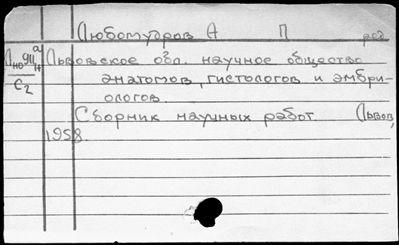 Любомудров А П ред.
Львовское обл. научное общество
анатомов, гистологов и эмбри-
ологов.
С2
Сборник научных работ Львов,
1958.